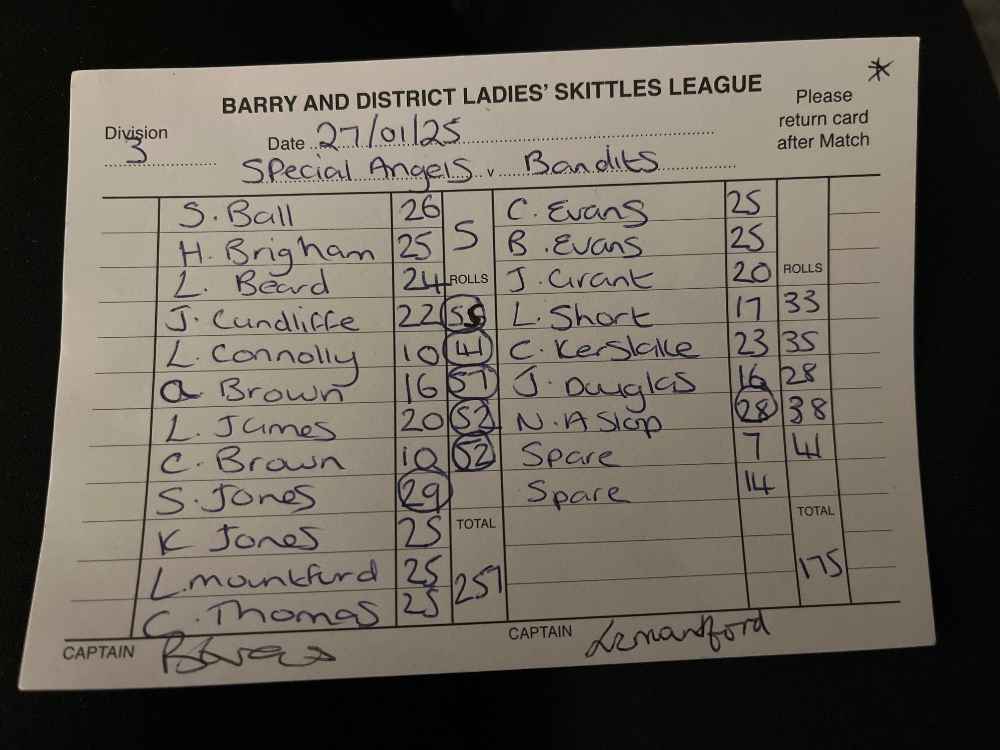 BARRY AND DISTRICT LADIES' SKITTLES LEAGUE
*
Please
return card
after Match
Division 3
Date 27/01/25
SPecial Angels v Bandits
S. Ball 26 5 C. Evans 25
H. Brigham 25 B. Evans 25
L. Beard 24 ROLLS J. Grant 20 ROLLS
J. Cundliffe 22 55 L. Short 17 33
L. Connolly 10 41 C. Kerslake 23 35
a Brown 16 57 J. Douglas 16 28
L. James 20 52 N. ASlap 28 38
C. Brown 10 52 Spare 7 41
S. Jones 29 Spare 14
K Jones 25 TOTAL TOTAL
L. mountford 25 257 175
C. Thomas 25
CAPTAIN
CAPTAIN